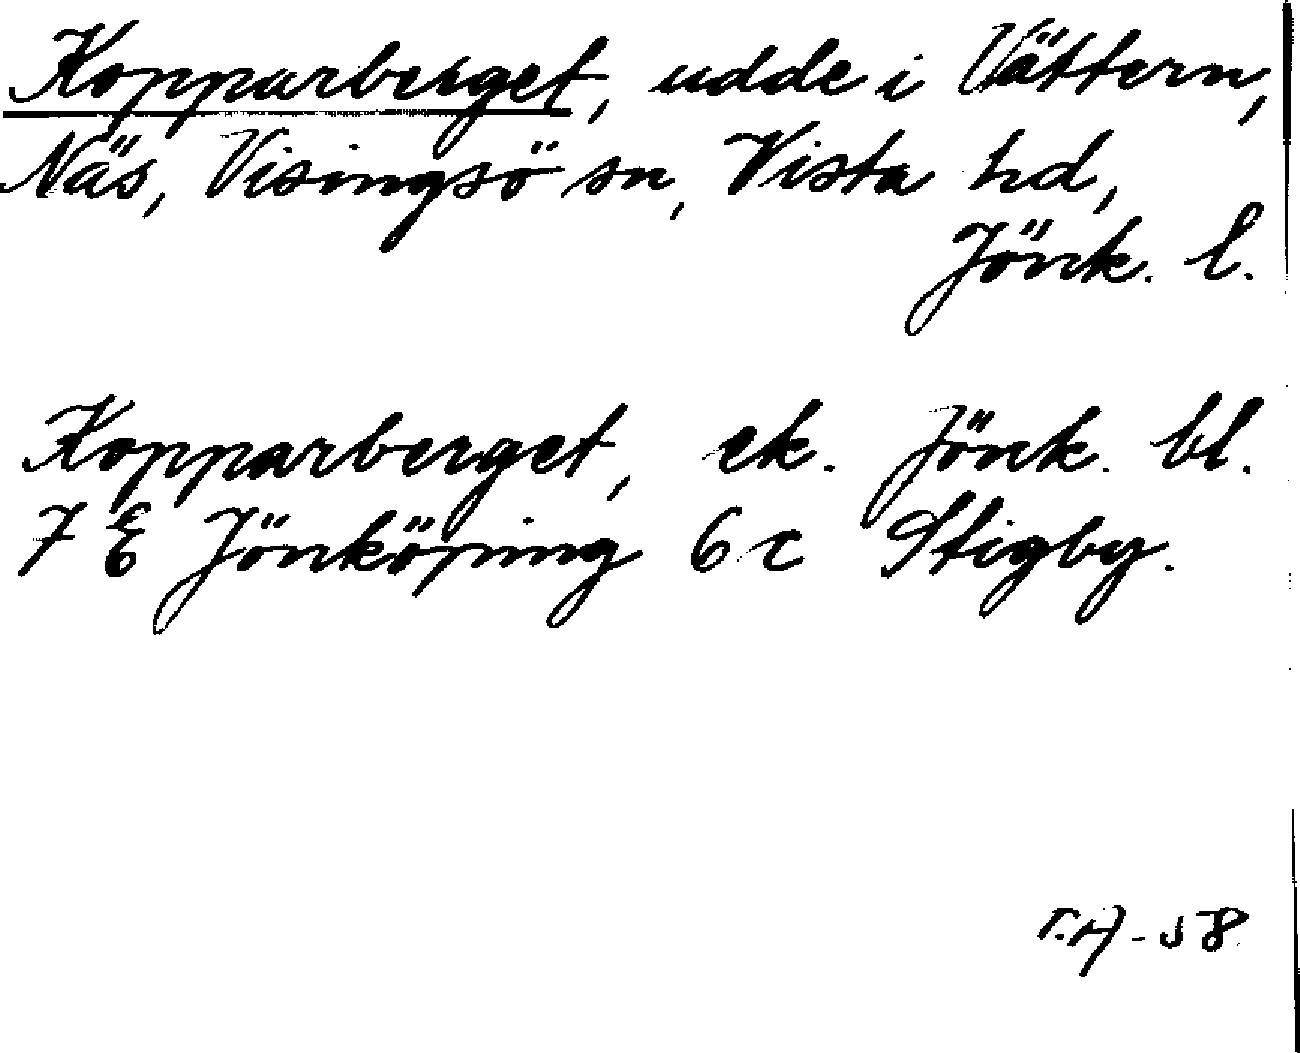 Kopparberget, udde i Vättern,
Näs, Visingsö sn, Vista hd,
Jönk. l.
Kopparberget, ek. Jönk. bl.
7 E Jönköping 6 c Stigby.